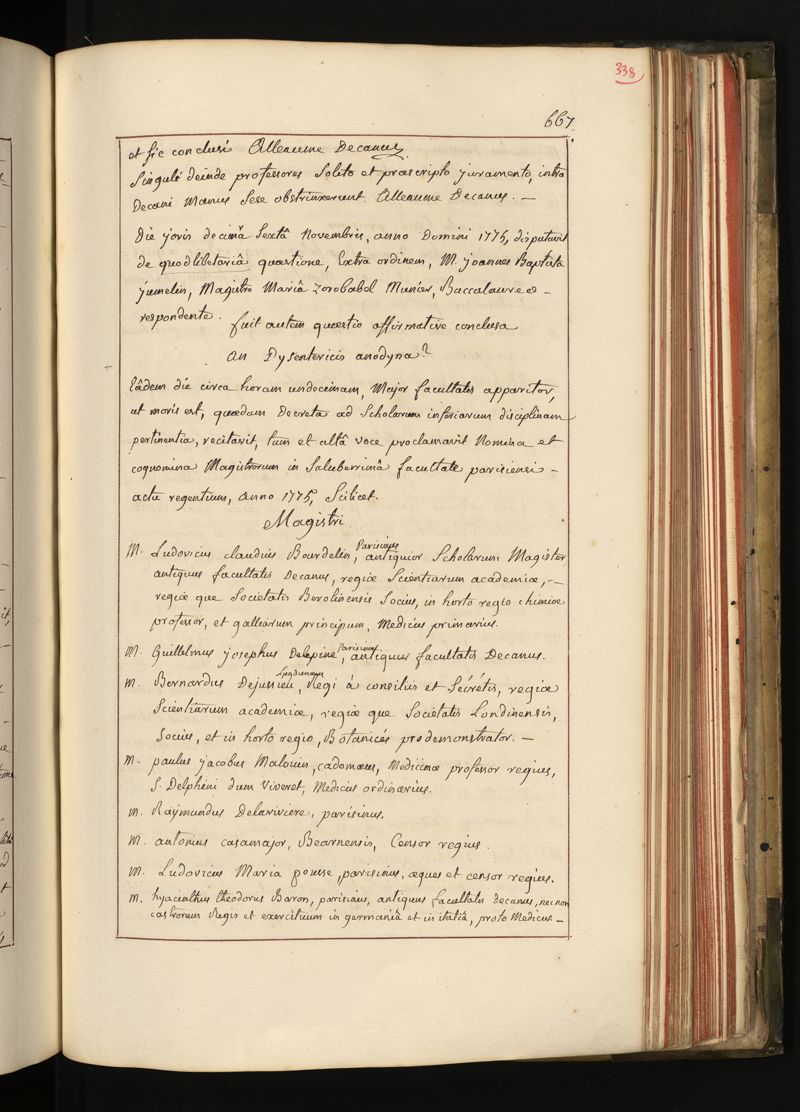 338
667
et sic conclusi Alleaume Decanus.
Singuli deinde professores Solito et praescripto juramento, intra
Decani Manus Sese obstrinxerunt Alleaume Decanus. —
Die jovis decimâ Sextâ Novembris, anno Domini 1775, disputavit
de quodlibetariâ quaestione, Extra ordinem, M. joannes Baptista
jumelin, Magistro Mariâ Zorobabel Munier, Baccalaureo –
respondente. fuit autem quaestio affirmative conclusa
an Dysentericis anodyna?
Eâdem die circa horam undecimam, Major facultatis apparitor,
ut moris est, quaedam Decreta ad Scholarum inferiarum disciplinam
pertinentia, recitavit, tum et altâ voce proclamavit Nomina et
cognomina Magistrorum in Saluberrimâ facultate parisiensi –
actu regentium, anno 1775, Scilicet.
Magistri
M. Ludovicus claudius Bourdelin, Parisinus, antiquior Scholarum Magister
antiquus facultatis Decanus, regiae Scientiarum academiae, –
regiae que Societatis Berolinensis Socius, in horto regio chimiae
professor, et galliarum principum, Medicus primarius.
M. Guillelmus josephus Delepine, Parisinus, antiquus facultatis Decanus.
M. Bernardus Dejussieu, Lugdunaeus, Regi á consiliis et Sécrétis, regiae
Scientiarum academiae, regiae que Societatis Londinensis,
Socius, et in horto regio, Botanicés prodemonstrator. —
M. paulus jacobus Malouin, cadomaeus, Medicinae professor regius,
S. Delphini dum viveret, Medicus ordinarius.
M. Raÿmundus Delariviere, parisinus.
M. antonius casamajor, Bearnensis, Censor regius.
M. Ludovicus Maria pousse, parisinus, aeques et censor regius.
M. hyacinthus theodorus Baron, parisinus, antiquus facultatis decanus, necnon
castrorum Regis et exercituum in germaniâ et in italiâ, proto Medicus –